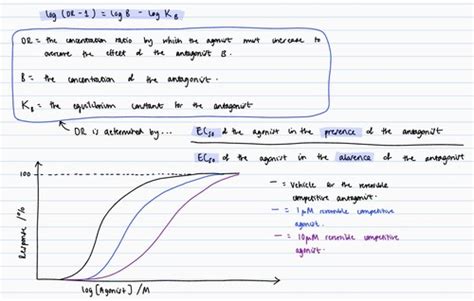 log (DR-1) = log B - log K_B
DR = the concentration ratio by which the agonist must increase to
overcome the effect of the antagonist B.
B = the concentration of the antagonist.
K_B = the equilibrium constant for the antagonist
DR is determined by... EC50 of the agonist in the presence of the antagonist
EC50 of the agonist in the absence of the antagonist
100
Response /%
log [Agonist] /M
— = Vehicle for the reversible
competitive antagonist.
— = 1 μM reversible competitive
agonist.
— = 10 μM reversible competitive
agonist.